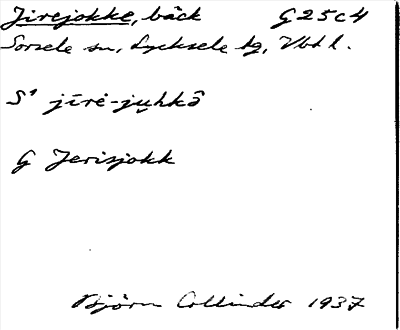 Jirejokke, bäck G25c4
Sorsele sn, Lycksele lg, Vbtl.
S¹ jīrė-jųhkǒ
G Jerisjokk
Björn Collinder 1937